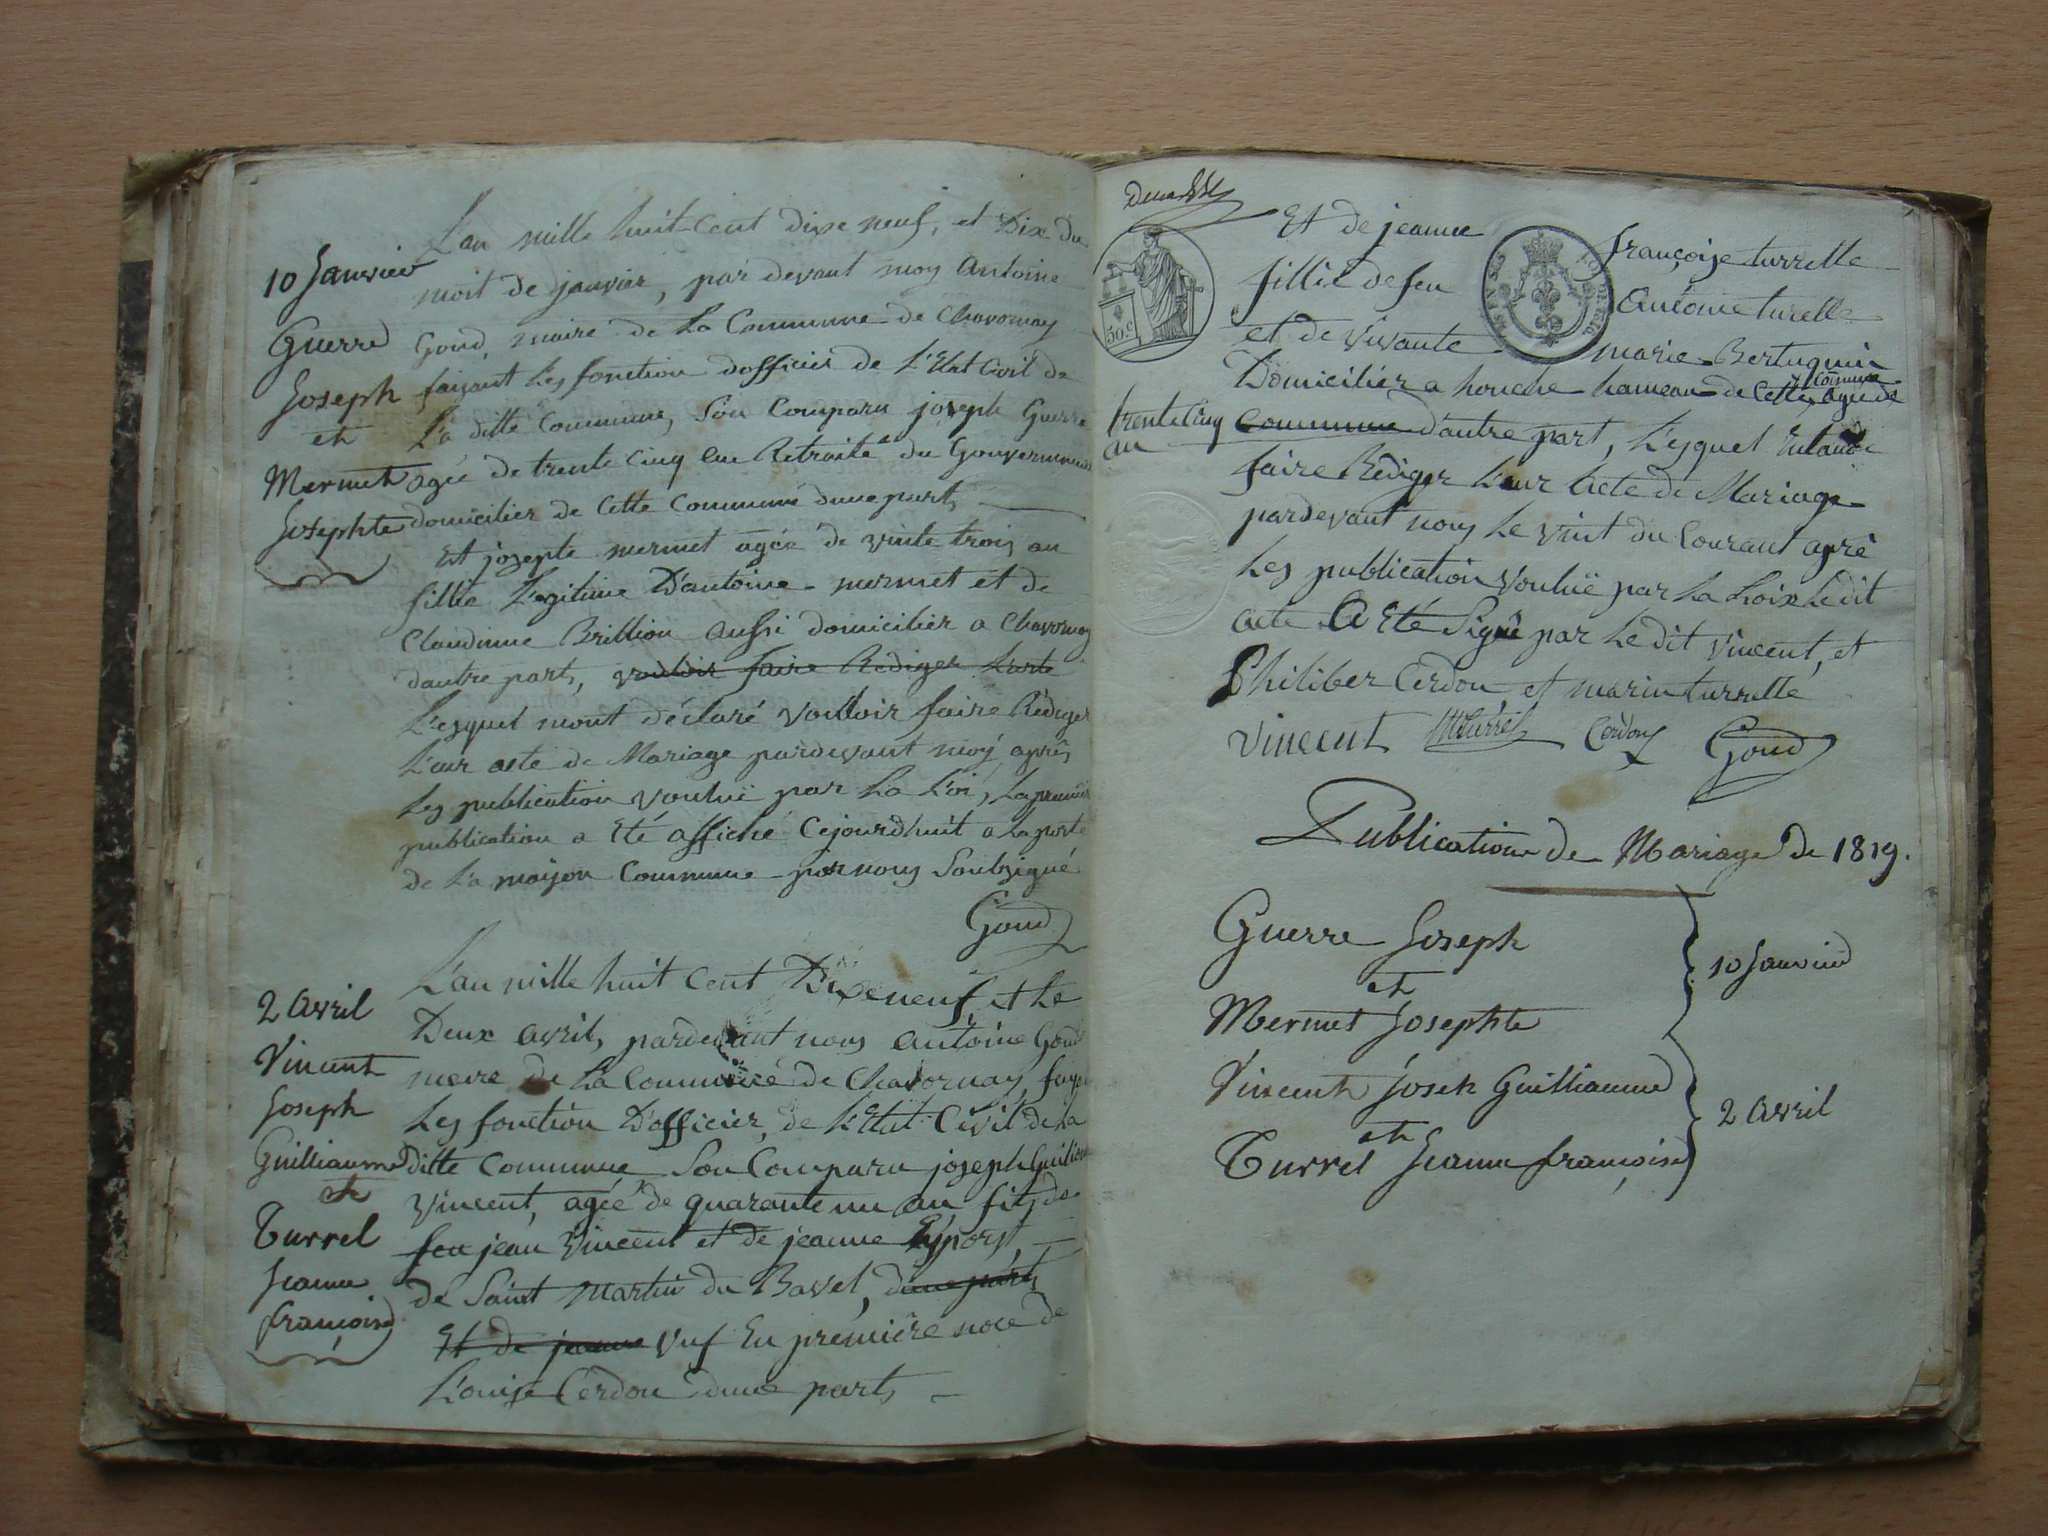 10 Janvier
Guerre
Joseph
et
Mermet
Josephte
L'an mille huit-cent dixe neuf, et Dix du
mois de janvier, par devant moy Antoine
Goud, maire de La Commune de Chavornay
faizant Les fonction dofficier de L'Etat Civil de
La ditte Commune, Son Comparu joseph Guerre
agée de trente Cinq an Retraité du Gouvernement
domicilier de Cette Commune dune part,
Et josepte mermet agée de vinte trois an
fillie Legitime D'antoine mermet et de
Claudinne Brillion aussi domicilier a Chavornay
dautre part, vouloir faire Rediger L'acte
L'esquel mont déclaré vouloir faire Rédiger
L'eur acte de Mariage pardevant moy, après
Les publication voulue par La L'oi, La premier
publication a Eté affiché Cejourdhuit a La porte
de La maison Commune par nous Soubsigné
Goud
2 Avril
Vincent
Joseph
Guilliaume
et
Turrel
Jeanne
françoise
L'an mille huit Cent Dixeneuf, et Le
Deux avril, pardevant nous Antoine Goud
maire de La Commune de Chavornay, fayant
Les fonction D'officier, de L'Etat Civil de La
ditte Commune Son Comparu joseph Guiliaume
Vincent, agée de quarante un an fils de
feu jean Vincent et de jeanne
de Saint Martin du Bavel, dune part,
Et de jeanne Vuf En première noce de
L'ouise Cerdon dune part,
50c
Et de jeanne françoise turrelle
fillie de feu Antoine turelle
et de vivante marie Bertuquin
Domicilier a houche hameau de Cette Commune agée de
trente Cinq
an
Commune d'autre part, L'esquel
faire Rédiger L'eur Acte de Mariage
pardevant nous Le vint du Courant aprè
Les publication Voulue par La Loix Ledit
acte A Eté Signé par Le dit Vincent, et
Philiber Cerdon et marin turrelle
Vincent MTurrel Cerdon Goud
Publication de Mariage de 1819.
Guerre Joseph
et
Mermet Josephte
10 Janvier
Vincent Joseh Guilliaume
et
Turrel Jeanne françoise
2 Avril